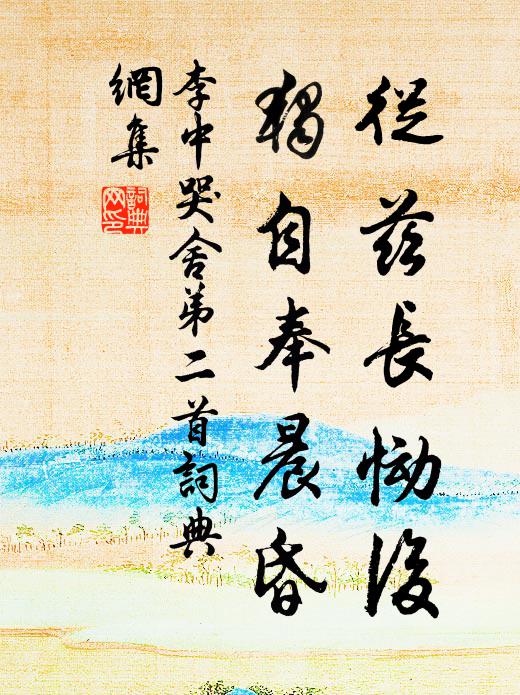 從茲長慟後
獨自奉晨昏
李中哭舍弟二首詞典
網集
詞典
網印